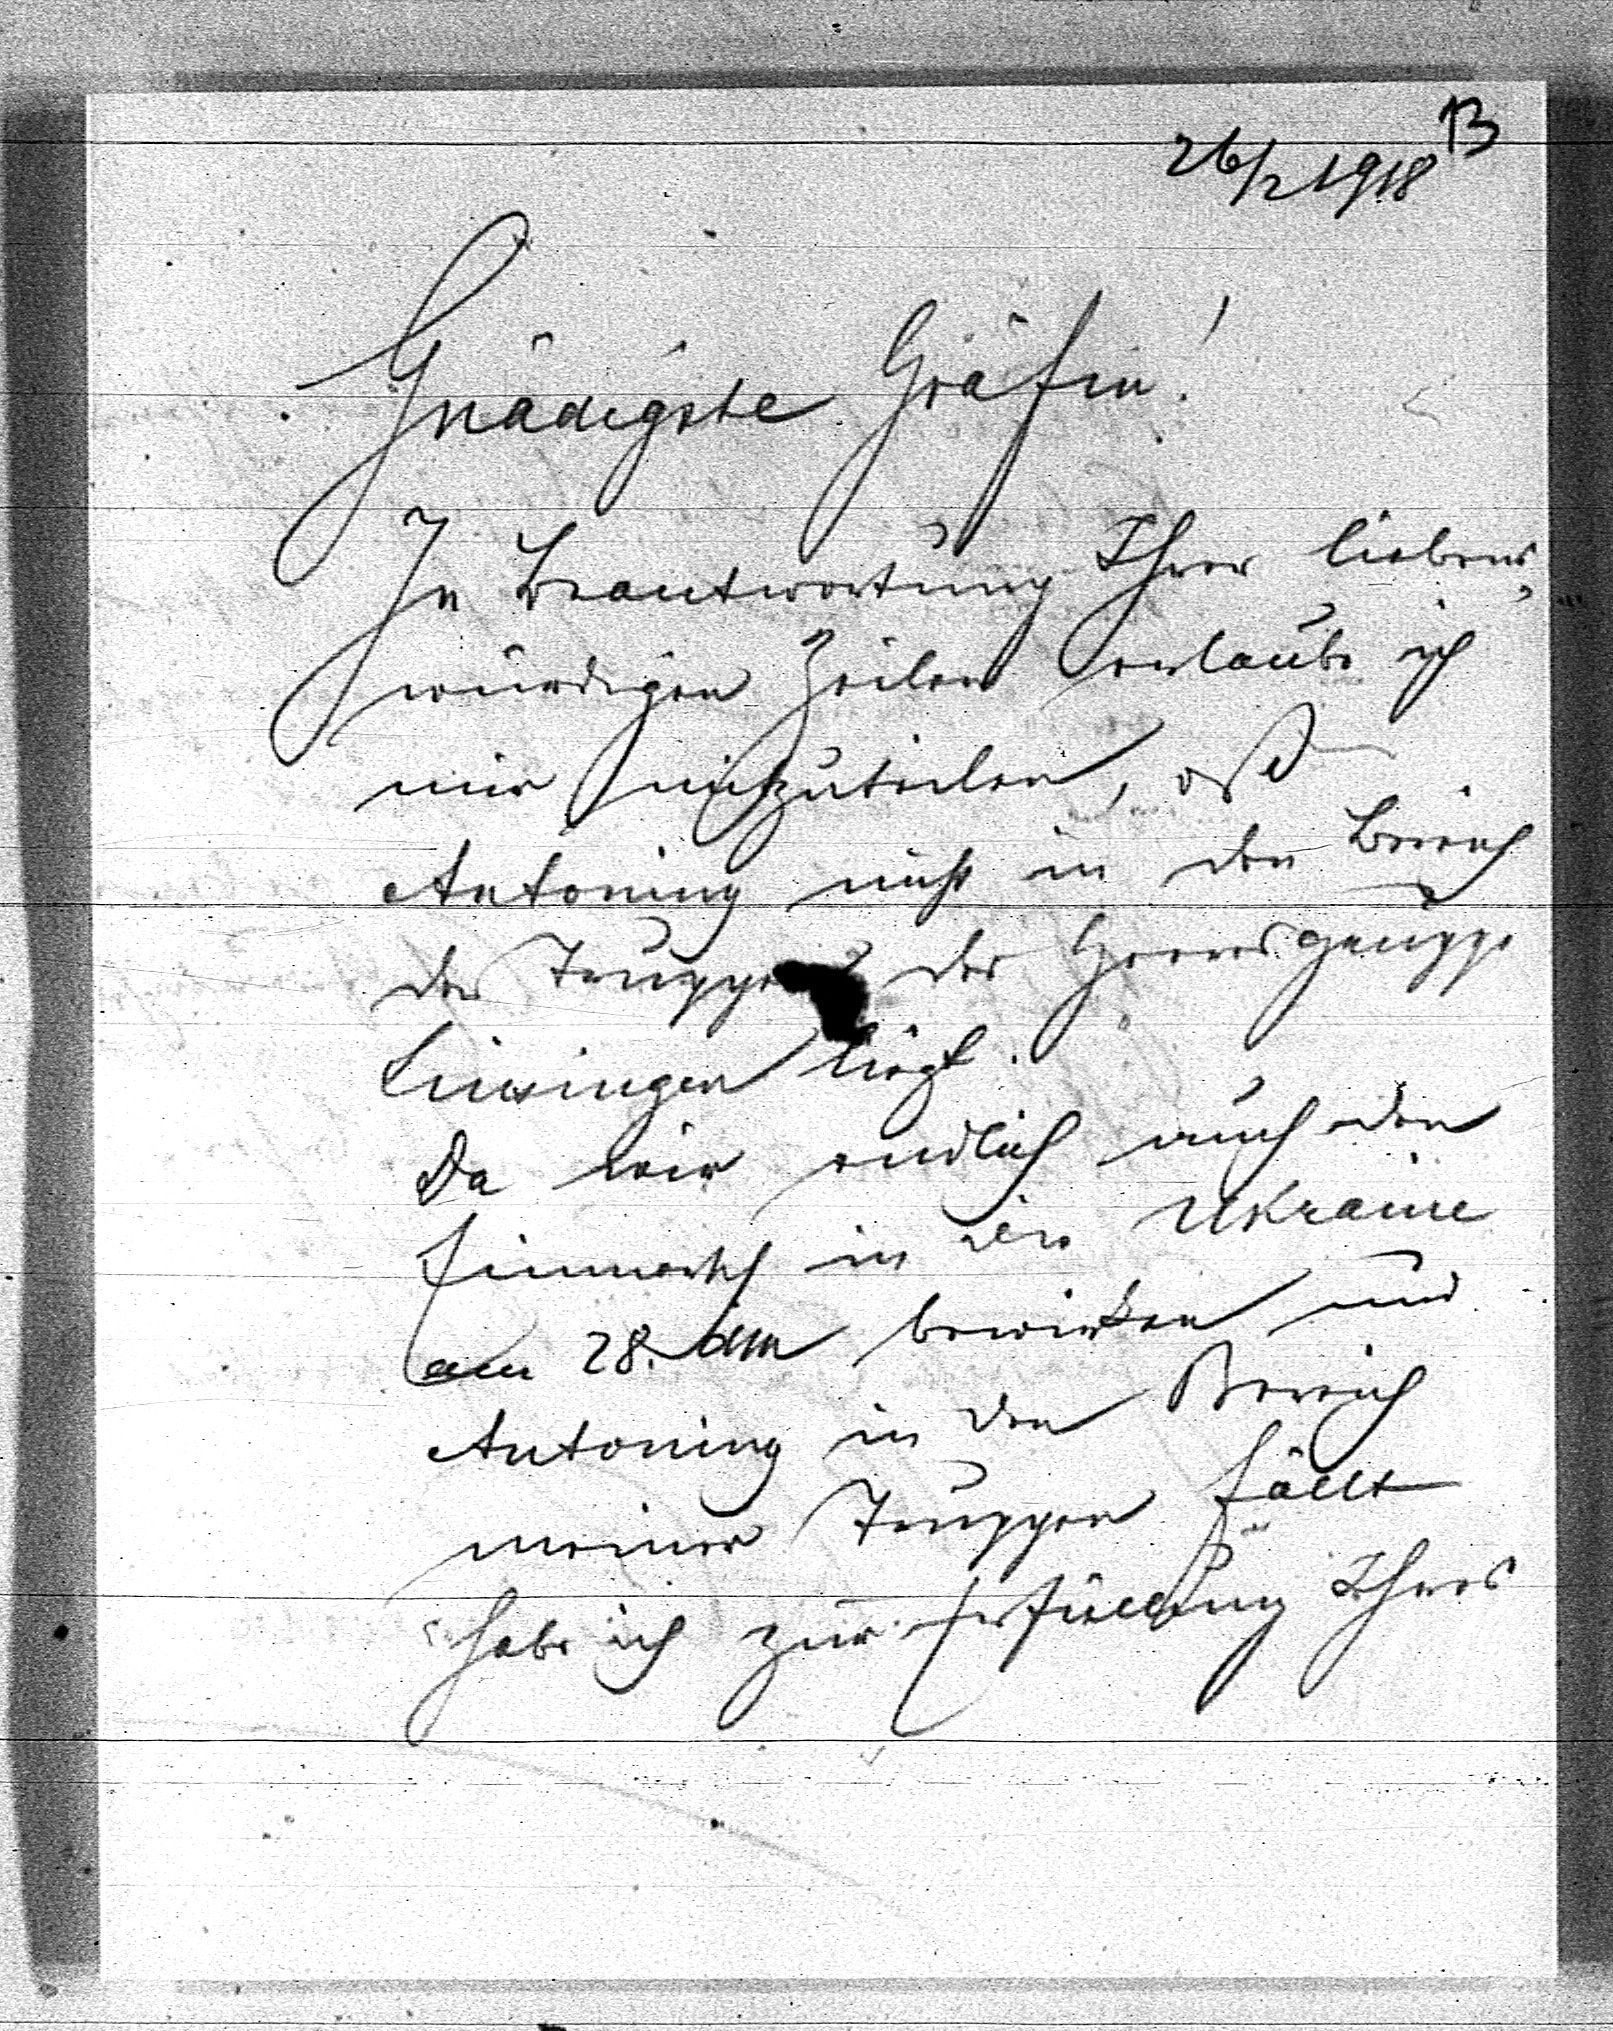 13
26/2 1918
Gnädigste Gräfin!
In Beantwortung Ihrer liebens,
würdigen Zeilen erlaube ich
mir mitzuteilen, daß
Antoniny nicht in den Bereich
der Truppen der Heeresgruppe
Linsingen liegt.
Da wir endlich auch den
Einmarsch in die Ukraine
am 28. dM bewirken und
Antoniny in den Bereich
meiner Truppen fällt
habe ich zur Erfüllung Ihres